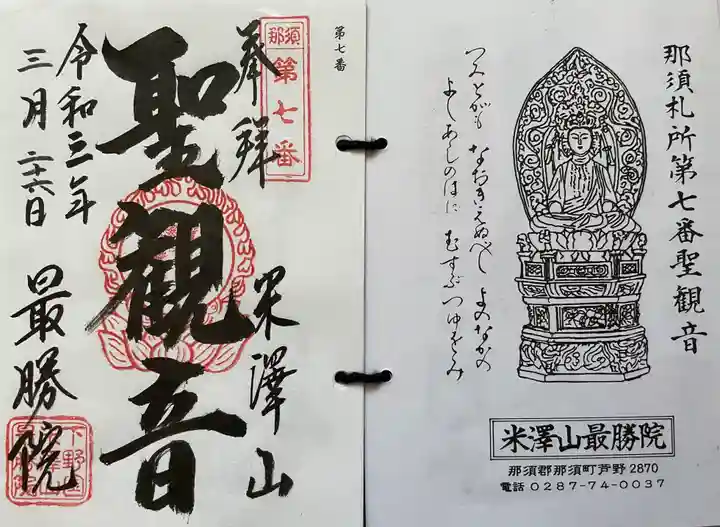 那須札所第七番聖観音
つみとがも なおきえぬべし よのなかの
よしあしのはに むすぶつゆをみ
米澤山最勝院
那須郡那須町芦野2870
電話0287-74-0037
第七番
那須
第七番
奉拝
米澤山
聖観音
令和三年
三月二十六日
最勝院